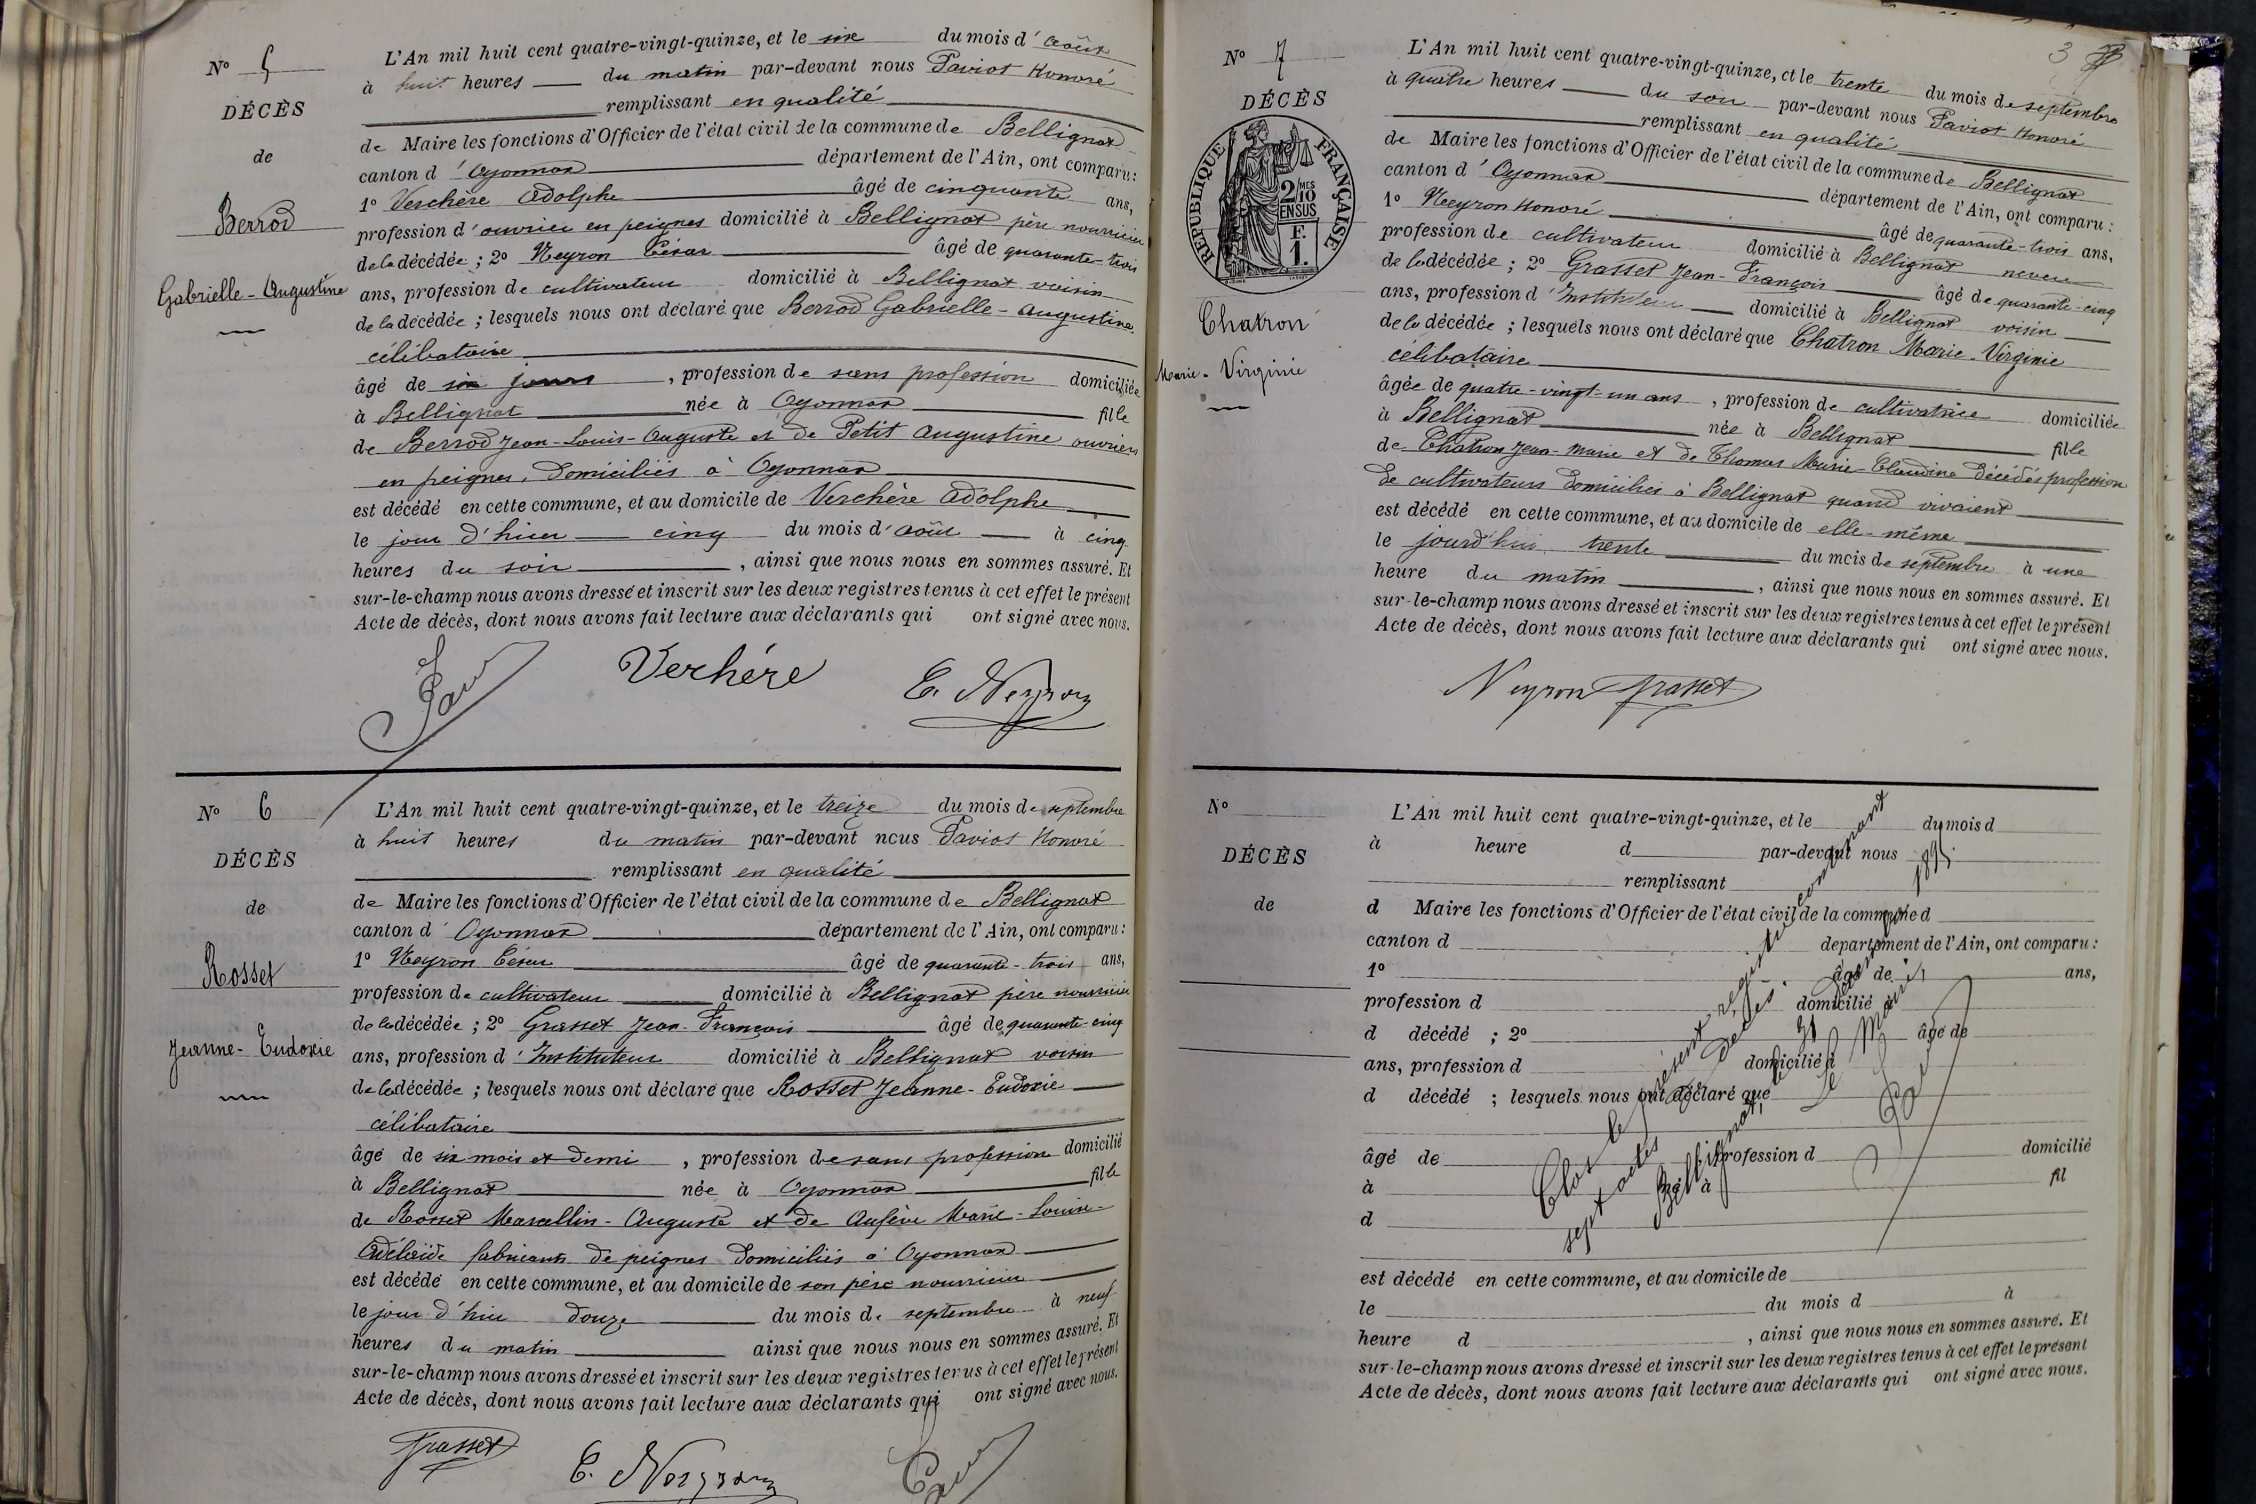 N° 5
DÉCÈS
de
Berrod
Gabrielle-Augustine
L'An mil huit cent quatre-vingt-quinze, et le six du mois d'août
à huit heures du matin par-devant nous Paviot Honoré
remplissant en qualité
de Maire les fonctions d'Officier de l'état civil de la commune de Bellignat
canton d'Oyonnax département de l'Ain, ont comparu:
1° Verchère Adolphe âgé de cinquante ans,
profession d'ouvrier en peignes domicilié à Bellignat père nourricier
de la décédée; 2° Neyron César âgé de quarante-trois
ans, profession de cultivateur domicilié à Bellignat voisin
de la décédée; lesquels nous ont déclaré que Berrod Gabrielle-Augustine
célibataire
âgé de six jours, profession de sans profession domiciliée
à Bellignat née à Oyonnax fille
de Berrod Jean-Louis-Auguste et de Petit Augustine ouvriers
en peignes, domiciliés à Oyonnax
est décédé en cette commune, et au domicile de Verchère Adolphe
le jour d'hier cinq du mois d'août à cinq
heures du soir, ainsi que nous nous en sommes assuré. Et
sur-le-champ nous avons dressé et inscrit sur les deux registres tenus à cet effet le présent
Acte de décès, dont nous avons fait lecture aux déclarants qui ont signé avec nous.
Verchére C. Neyron
N° 6
DÉCÈS
de
Rosset
Jeanne-Eudoxie
L'An mil huit cent quatre-vingt-quinze, et le treize du mois de septembre
à huit heures du matin par-devant nous Paviot Honoré
remplissant en qualité
de Maire les fonctions d'Officier de l'état civil de la commune de Bellignat
canton d'Oyonnax département de l'Ain, ont comparu:
1° Neyron César âgé de quarante-trois ans,
profession de cultivateur domicilié à Bellignat père nourricier
de la décédée; 2° Grasset Jean-François âgé de quarante-cinq
ans, profession d'Instituteur domicilié à Bellignat voisin
de la décédée; lesquels nous ont déclaré que Rosset Jeanne-Eudoxie
célibataire
âgé de six mois et demi, profession de sans profession domicilié
à Bellignat née à Oyonnax fille
de Rosset Marcellin-Auguste et de Aufève Marie-Louise-
Adélaïde fabricants de peignes domiciliés à Oyonnax
est décédé en cette commune, et au domicile de son père nourricier
le jour d'hier douze du mois de septembre à neuf
heures du matin ainsi que nous nous en sommes assuré. Et
sur-le-champ nous avons dressé et inscrit sur les deux registres tenus à cet effet le présent
Acte de décès, dont nous avons fait lecture aux déclarants qui ont signé avec nous.
Grasset C. Neyron
3
N° 7
DÉCÈS
RÉPUBLIQUE FRANÇAISE
2/10 MES
EN SUS
F.
1.
Chatron
Marie-Virginie
L'An mil huit cent quatre-vingt-quinze, et le trente du mois de septembre
à quatre heures du soir par-devant nous Paviot Honoré
remplissant en qualité
de Maire les fonctions d'Officier de l'état civil de la commune de Bellignat
canton d'Oyonnax département de l'Ain, ont comparu:
1° Neyron Honoré âgé de quarante-trois ans,
profession de cultivateur domicilié à Bellignat neveu
de la décédée; 2° Grasset Jean-François âgé de quarante-cinq
ans, profession d'Instituteur domicilié à Bellignat voisin
de la décédée; lesquels nous ont déclaré que Chatron Marie-Virginie
célibataire
âgée de quatre-vingt-un ans, profession de cultivatrice domiciliée
à Bellignat née à Bellignat fille
de Chatron Jean-Marie et de Thomas Marie-Claudine décédés profession
de cultivateurs domiciliés à Bellignat quand vivaient
est décédé en cette commune, et au domicile de elle-même
le jourd'hui trente du mois de septembre à une
heure du matin, ainsi que nous nous en sommes assuré. Et
sur-le-champ nous avons dressé et inscrit sur les deux registres tenus à cet effet le présent
Acte de décès, dont nous avons fait lecture aux déclarants qui ont signé avec nous.
Neyron Grasset
N°
DÉCÈS
de
L'An mil huit cent quatre-vingt-quinze, et le du mois d
à heure d par-devant nous
remplissant
d Maire les fonctions d'Officier de l'état civil de la commune d
canton d département de l'Ain, ont comparu:
1° âgé de ans,
profession d domicilié à
d décédé; 2° âgé de
ans, profession d domicilié à
d décédé; lesquels nous ont déclaré que
âgé de, profession d domicilié
à né à fil
d
est décédé en cette commune, et au domicile de
le du mois d à
heure d, ainsi que nous nous en sommes assuré. Et
sur-le-champ nous avons dressé et inscrit sur les deux registres tenus à cet effet le présent
Acte de décès, dont nous avons fait lecture aux déclarants qui ont signé avec nous.
Clos le présent registre comprenant
sept actes de décès.
Bellignat, le 31 décembre 1895
Le Maire,